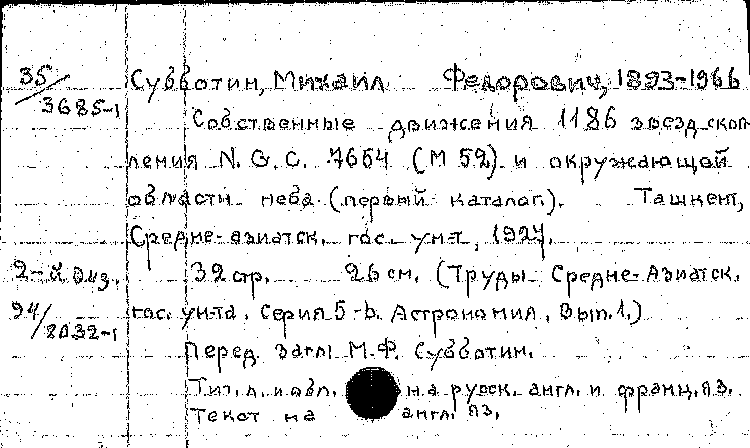 35/3685-1
Субботин, Михаил Федорович, 1893-1966
Собственные движения 1186 звезд скоп
ления N. G. C. 7654 (M 52) и окружающей
области неба (первый каталог). Ташкент,
Средне-азиатск. гос. ун-т, 1927.
2-й экз. 32 стр. 26 см. (Труды Средне-Азиатск.
94/8032-1 гос. ун-та. Серия 5-b. Астрономия. Вып. 1.)
Перед загл. М. Ф. Субботин.
Тит. л. и обл. на русск. англ. и франц. яз.
Текст на англ. яз.